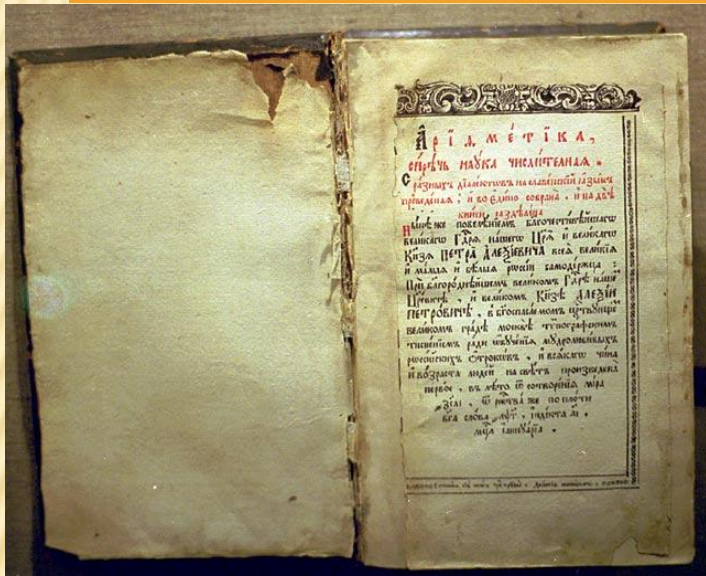 А҆рїѳме́тїка,
си́рѣчь наꙋ́ка числи́телнаѧ.
С ра́зныхъ дїале́ктѡвъ на славе́нскїй ꙗ҆зы́къ
преведе́наѧ, и҆ во є҆ди́но собрана̀, и҆ на двѣ̀
кни̑ги раздѣлена̀
Ны́нѣ же повелѣ́нїемъ благочести́вѣйшагѡ
вели́кагѡ Гдⷭ҇рѧ на́шегѡ Цр҃ѧ̀ и҆ вели́кагѡ
Кн҃зѧ ПЕТРА̀ А҆ЛЕѮІ́ЕВИЧА всеѧ̀ вели́кїѧ
и҆ ма́лыѧ и҆ бѣ́лыѧ рѡссі́и самоде́ржца:
Прѝ благоро́днѣйшемъ вели́комъ Гдⷭ҇рѣ на́шемъ
Цр҃е́вичѣ, и҆ вели́комъ Кн҃зѣ А҆ЛЕѮІ́И
ПЕТРО́ВИЧѢ, в бг҃оспаса́емомъ црⷭ҇твꙋющемъ
вели́комъ гра́дѣ москвѣ̀ тѷпогра́фскимъ
тисне́нїемъ ра́ди ѡ҆бꙋче́нїѧ мꙋдролюби́выхъ
рѡссі́йскихъ ѻ҆́трокѡвъ, и҆ всѧ́кагѡ чи́на
и҆ во́зраста люде́й на свѣ́тъ произведена̀
пе́рвое, въ лѣ́то ѿ сотворе́нїѧ мі́ра
ѿ ржⷭ҇тва̀ же по пло́ти
бг҃а сло́ва ҂аѱг, і҆ндї́кта аі,
мцⷭ҇а і҆аннꙋа́рїа.